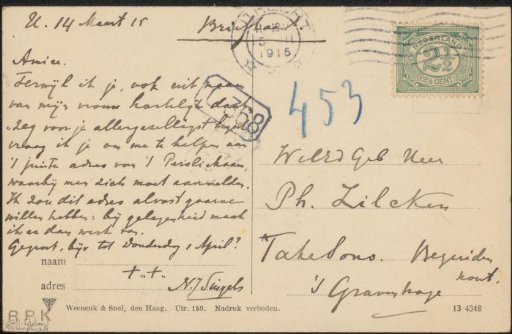 U. 14 Maart 15
Briefkaart
UTRECHT
1915
NEDERLAND
2½
CENT
Amice.
Terwijl ik je, ook uit naam
van mijn vrouw hartelijk dank
zeg voor je allergezelligst
vraag ik je om me te helpen aan
't juiste adres van 't
waarbij men zich moet aanmelden.
Ik zou dit adres alvast gaarne
willen hebben: bij gelegenheid maak
ik er dan werk van.
Gegroet, bijv tot Donderdag 1 April?
N.J. Singels
368
453
WelEdGeb Heer
Ph. Zilcken
Bezuidenhout
's Gravenhage
naam
adres
R.P.K
Weenenk & Snel, den Haag. Uitr. 159. Nadruk verboden.
13 4348